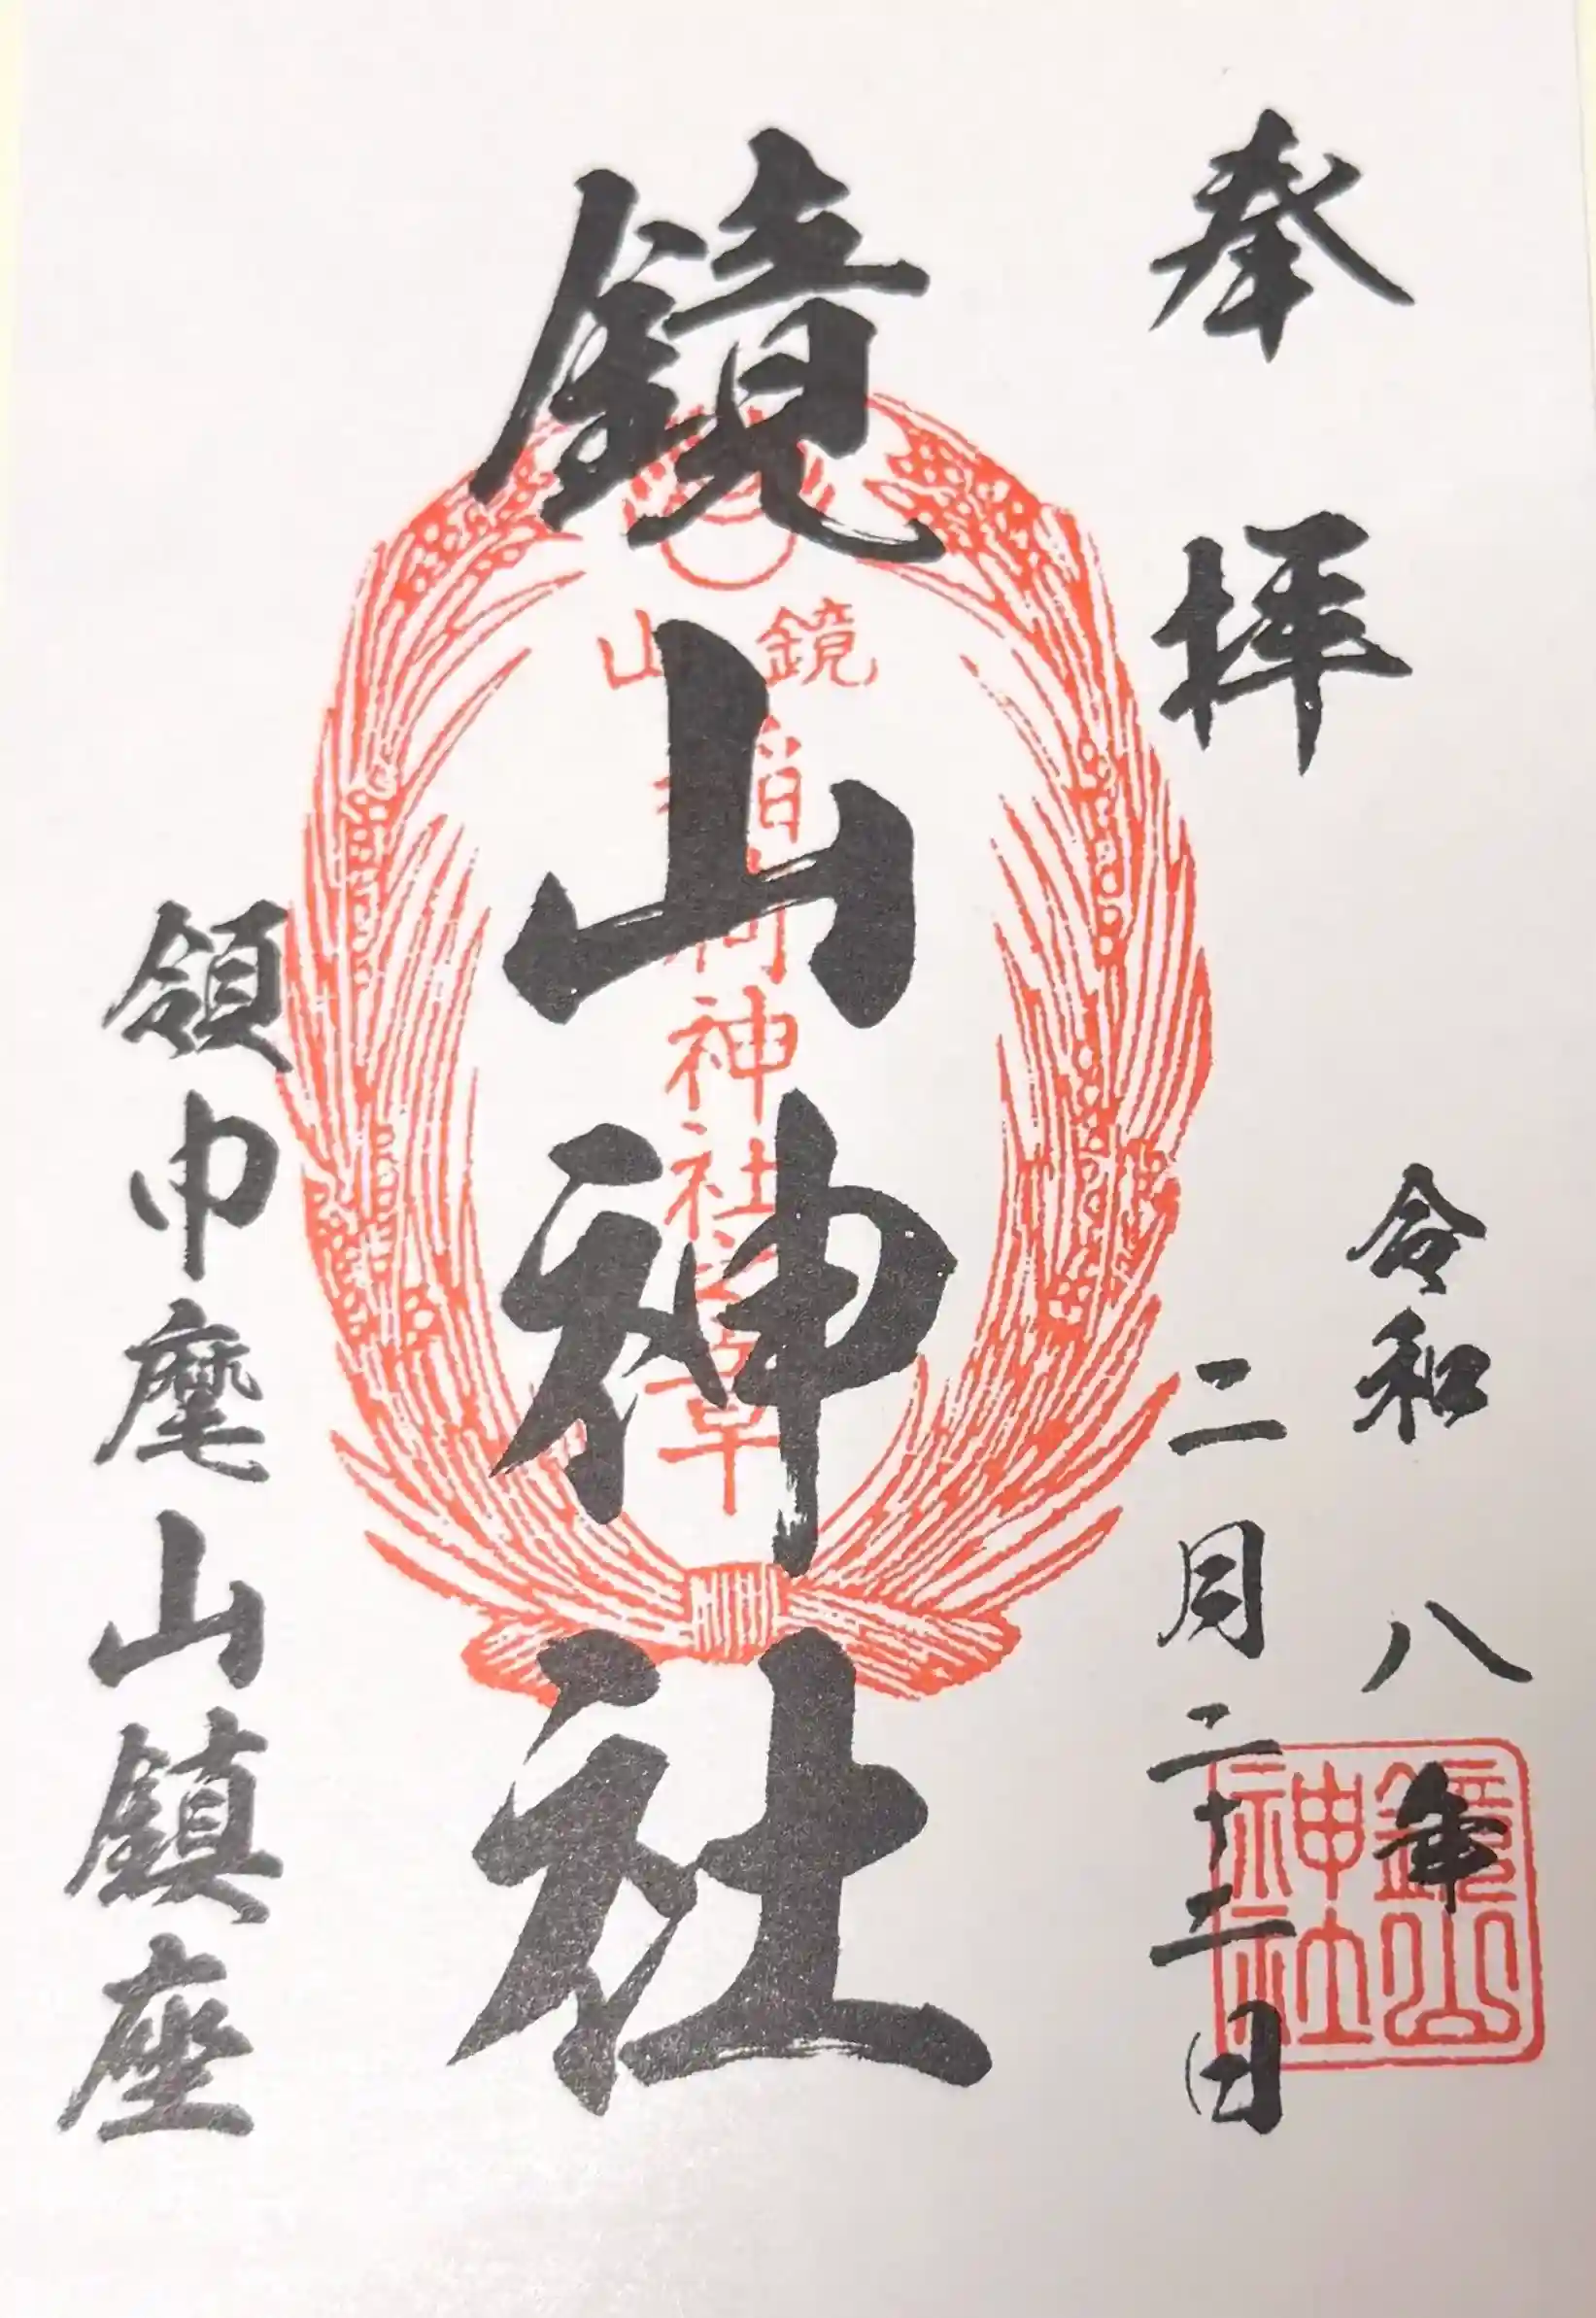 奉拝
令和八年
二月二十二日
鏡山神社
鏡山
稲荷神社之章
鏡山
神社
領巾麾山鎮座